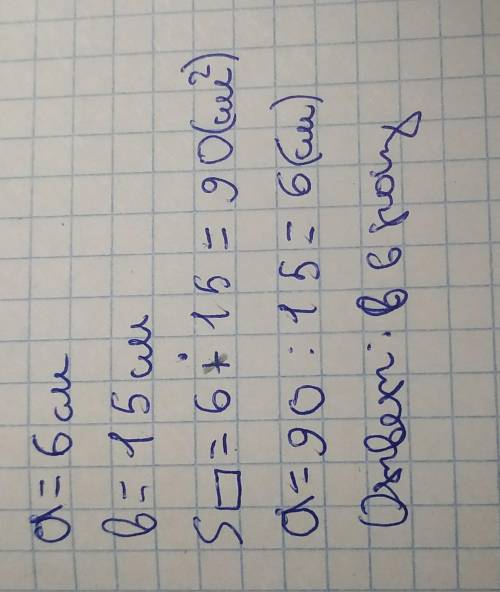 a = 6 см
в = 15 см
S□ = 6 * 15 = 90 (см²)
a = 90 : 15 = 6 (см)
Ответ: в 6